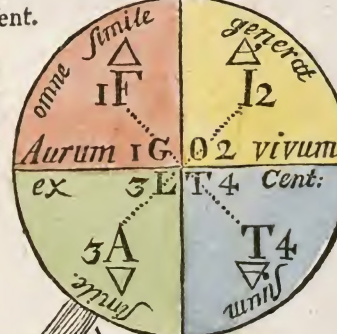 ent.
omne simile generat
△ △
1F I2
Aurum 1G O2 vivum
ex 3E T4 Cent:
3A T4
▽ ▽
simile. suum